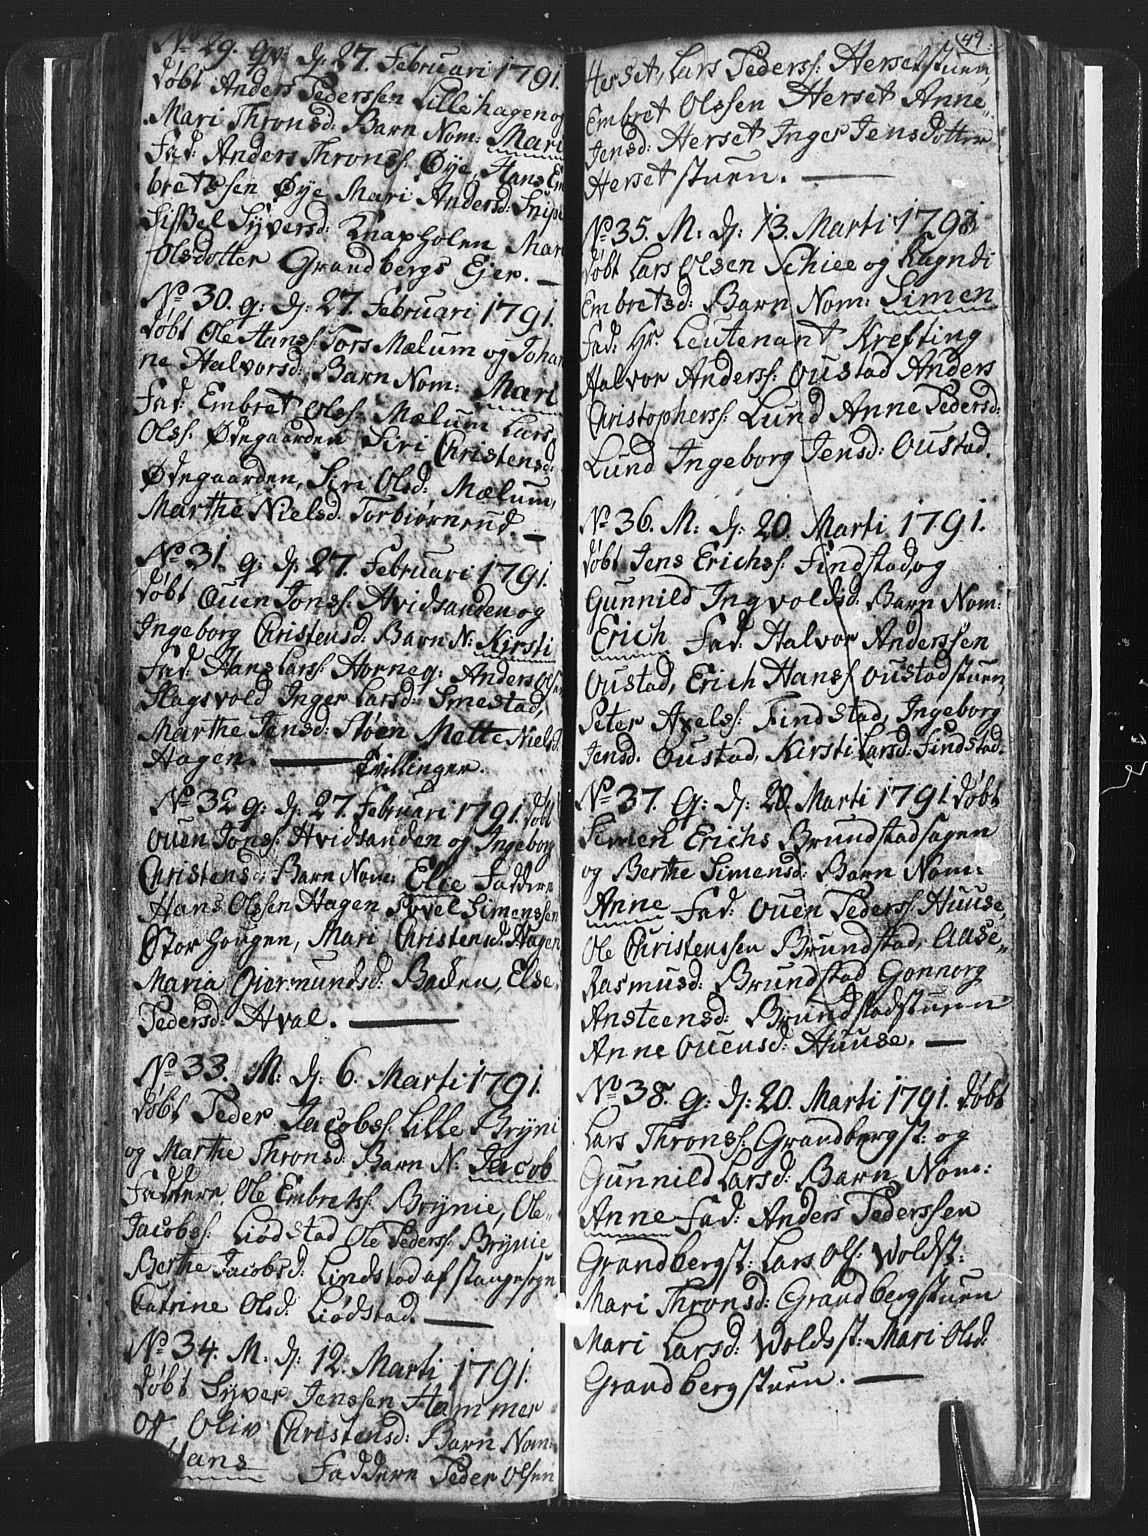 No 29. gv: d: 27. Februari 1791.
døbt Anders Pederssen Lillehagen og
Mari Thronsd: Barn Nom: Mari
Fad: Anders Throns: Øye, Hans Em
bretssen Øye Mari Andersd: Snipe
Sissel Syversd: Knapholen Mari
Olsdotter Grandbergs Ejer. —
No 30. g: d: 27. Februari 1791.
døbt Ole Hans: Tors Mælum og Johan
ne Halvorsd: Barn Nom: Mari
Fad: Embret Ols: Mælum Lars
Ols: Ødegaarden Siri Christensd:
Ødegaarden, Siri Olsd: Mælum,
Marthe Nielsd: Torbiørnrud. —
No 31. g: d: 27. Februari 1791.
døbt Ouen Jons: Hvidsanden og
Ingeborg Christensd: Barn N: Kirsti
Fad: Hans Lars: Horneg: Anders Olsen
Slagsvold Inger Larsd: Smestad,
Marthe Jensd: Støen Mette Nielsd
Hagen. — Tvillinger.
No 32 g: d: 27. Februari 1791. døbt
Ouen Jons: Hvidsanden og Ingeborg
Christensd: Barn Nom: Elie Faddere
Hans Olssen Hagen Povel Simenssen
Storhougen, Mari Christensd: Hagen
Maria Giermundsd: Backen, Else
Pedersd: Hval. —
No 33. M: d: 6. Marti 1791.
døbt Peder Jacobs: Lille Bryni
og Marthe Thronsd: Barn N: Jacob
Faddere Ole Embrets: Brynie, Ole
Jacobs: Liødstad Ole Peders: Brynie
Berthe Jacobsd: Lindstad af stangesogn
Catrine Olsd: Liødstad. —
No 34. M: d: 12. Marti 1791.
døbt Syver Jenssen Hammer
og Oliv Christensd: Barn Nom:
Hans Faddere Peder Olsen
49.
Herset, Lars Peders: Hersetstuen,
Embret Olssen Herset Anne
Jensd: Herset Inger Jensdotter
Hersetstuen. —
No 35. M: d: 13. Marti 1791
døbt Lars Olsen Schiee og Ragndi
Embretsd: Barn Nom: Simen
Fad: Hr Leutenant Krefting
Halvor Anders: Oustad Anders
Christophers: Lund Anne Pedersd:
Lund Ingeborg Jensd: Oustad.
No 36. M: d: 20. Marti 1791.
døbt Jens Erichs: Findstad og
Gunnild Ingvoldsd: Barn Nom:
Erich Fad: Halvor Anderssen
Oustad, Erich Hans: Oustadstuen,
Peter Axels: Findstad, Ingeborg
Jensd. Oustad, Kirsti Larsd: Findstad.
No 37. g: d: 20. Marti 1791. døbt
Simen Erichs Brundstadhagen
og Berthe Simensd: Barn Nom:
Anne Fad: Ouen Peders: Huuse,
Ole Christenssen Brundstad, Aase
Rasmusd: Brundstad Gonnorg
Ansteensd: Brundstadstuen
Anne Ouensd: Huuse. —
No 38. g: d: 20. Marti 1791. døbt
Lars Throns: Grandbergst: og
Gunnild Larsd: Barn Nom:
Anne Fad: Anders Pederssen
Grandbergst: Lars Ols: Woldst:
Mari Thronsd: Grandbergstuen
Mari Larsd: Woldst: Mari Olsd:
Grandbergstuen. —